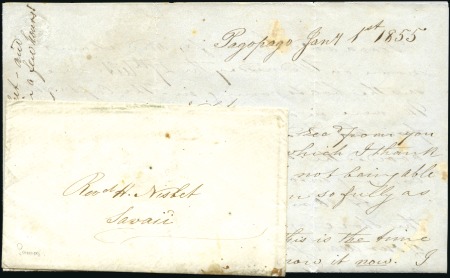 Pagopago Jany 1st 1855
from you
which I thank
not being able
so fully as
this is the time
now it now. I
Revd H. Nisbet
Savaii
- and
a few lines